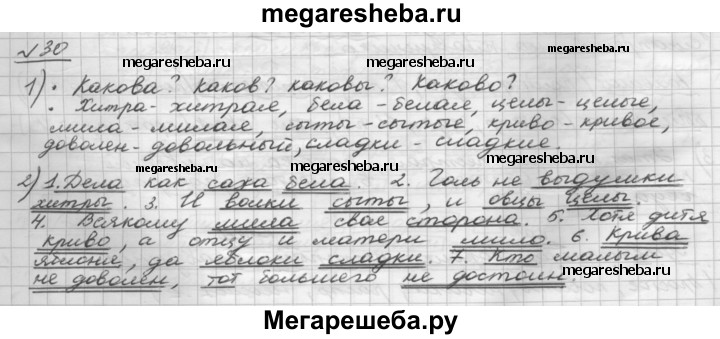 megaresheba.ru
№30
megaresheba.ru megaresheba.ru megaresheba.ru
1) • Какова? Каков? каковы? Каково?
• Хитра - хитрая, бела - белая, целы - целые,
мила - милая, сыты - сытые, криво - кривое,
доволен - довольный, сладки - сладкие.
megaresheba.ru megaresheba.ru
2) 1. Дела как саха бела. 2. Голь не выдумки
хитры. 3. И волки сыты, и овцы целы.
4. Всякому мила своя сторона. 5. Хотя дитя
криво, а отцу и матери мило. 6. Крива
яблоня, да яблоки сладки. 7. Кто малым
не доволен, тот большего не достоин.
megaresheba.ru megaresheba.ru megaresheba.ru
Мегарешеба.ру